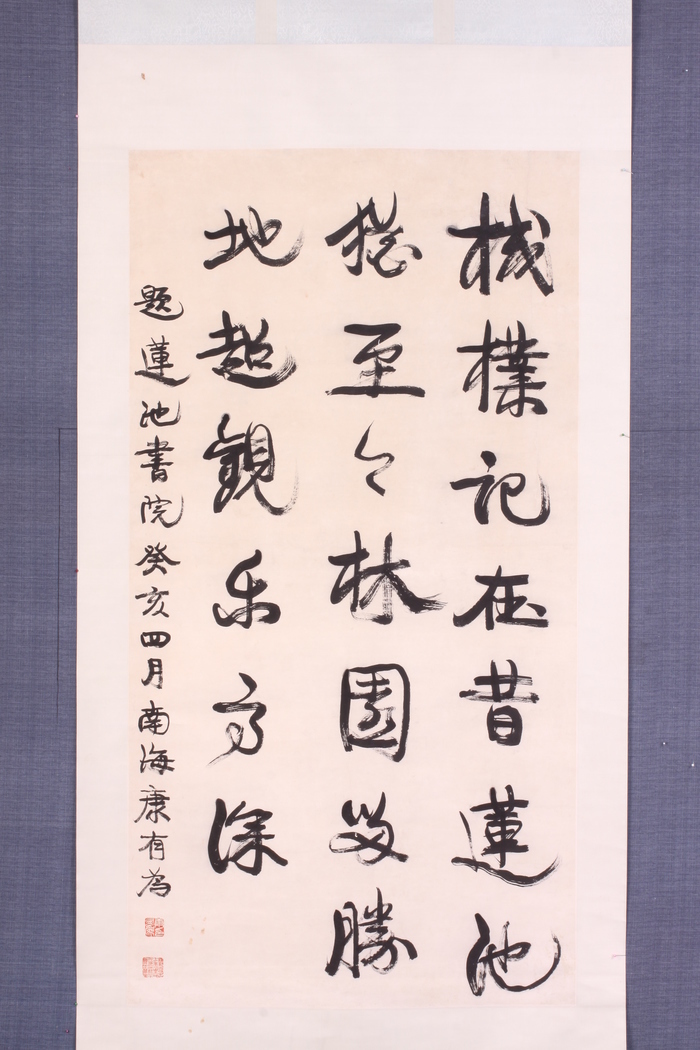 棫樸記在昔蓮池
猶至今林園留勝
地超觀乐高深
題蓮池書院癸亥四月南海康有為